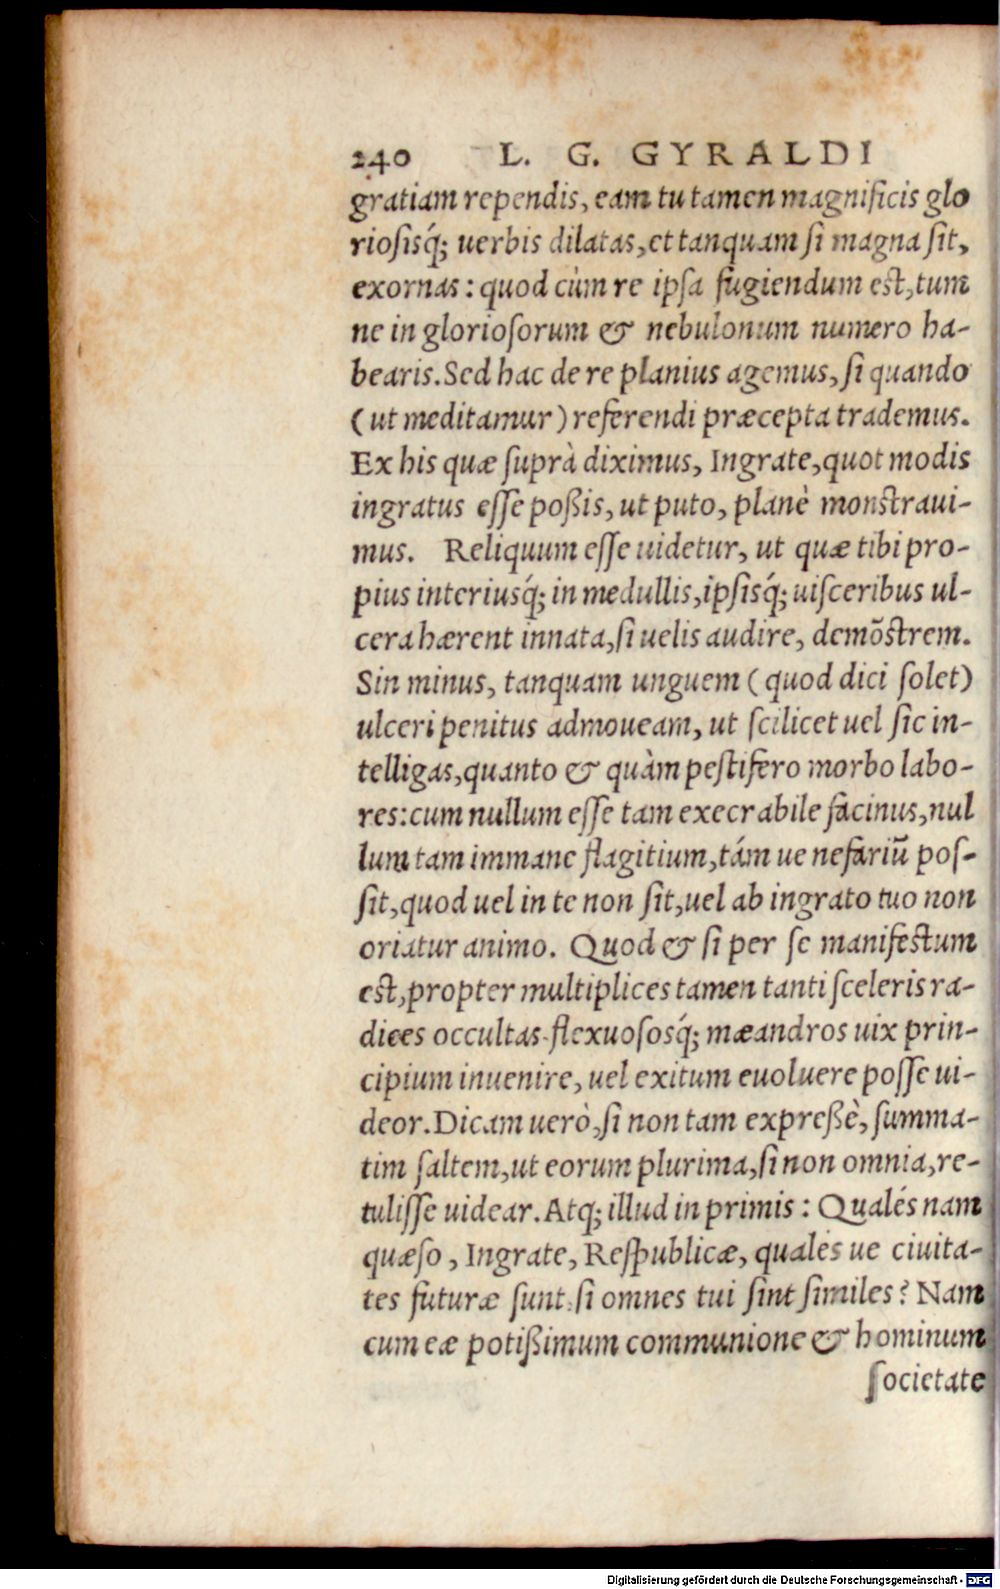 240 L. G. GYRALDI
gratiam rependis, eam tu tamen magnificis glo
riosisq́; uerbis dilatas, et tanquam si magna sit,
exornas: quod cùm re ipsa fugiendum est, tum
ne in gloriosorum & nebulonum numero ha-
bearis. Sed hac de re planius agemus, si quando
(ut meditamur) referendi præcepta trademus.
Ex his quæ suprà diximus, Ingrate, quot modis
ingratus esse poßis, ut puto, planè monstraui-
mus. Reliquum esse uidetur, ut quæ tibi pro-
pius interiusq́; in medullis, ipsisq́; uisceribus ul-
cera hærent innata, si uelis audire, demõstrem.
Sin minus, tanquam unguem (quod dici solet)
ulceri penitus admoueam, ut scilicet uel sic in-
telligas, quanto & quàm pestifero morbo labo-
res: cum nullum esse tam execrabile facinus, nul
lum tam immane flagitium, tám ue nefariũ pos-
sit, quod uel in te non sit, uel ab ingrato tuo non
oriatur animo. Quod & si per se manifestum
est, propter multiplices tamen tanti sceleris ra-
dices occultas flexuososq́; mæandros uix prin-
cipium inuenire, uel exitum euoluere posse ui-
deor. Dicam uerò, si non tam expreßè, summa-
tim saltem, ut eorum plurima, si non omnia, re-
tulisse uidear. Atq; illud in primis: Qualés nam
quæso, Ingrate, Respublicæ, quales ue ciuita-
tes futuræ sunt, si omnes tui sint similes? Nam
cum eæ potißimum communione & hominum
societate
Digitalisierung gefördert durch die Deutsche Forschungsgemeinschaft - DFG